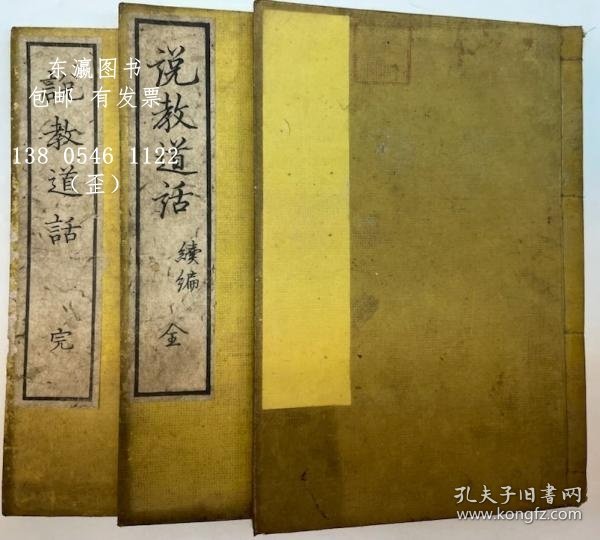 説教道話
完
说教道话
續编
全
东瀛图书
包邮 有发票
138 0546 1122
（歪）
孔夫子旧书网
www.kongfz.com